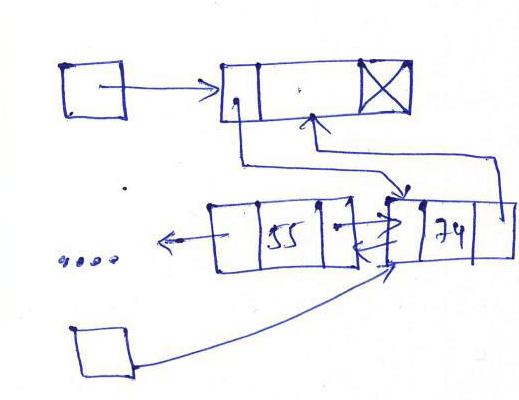 55 74